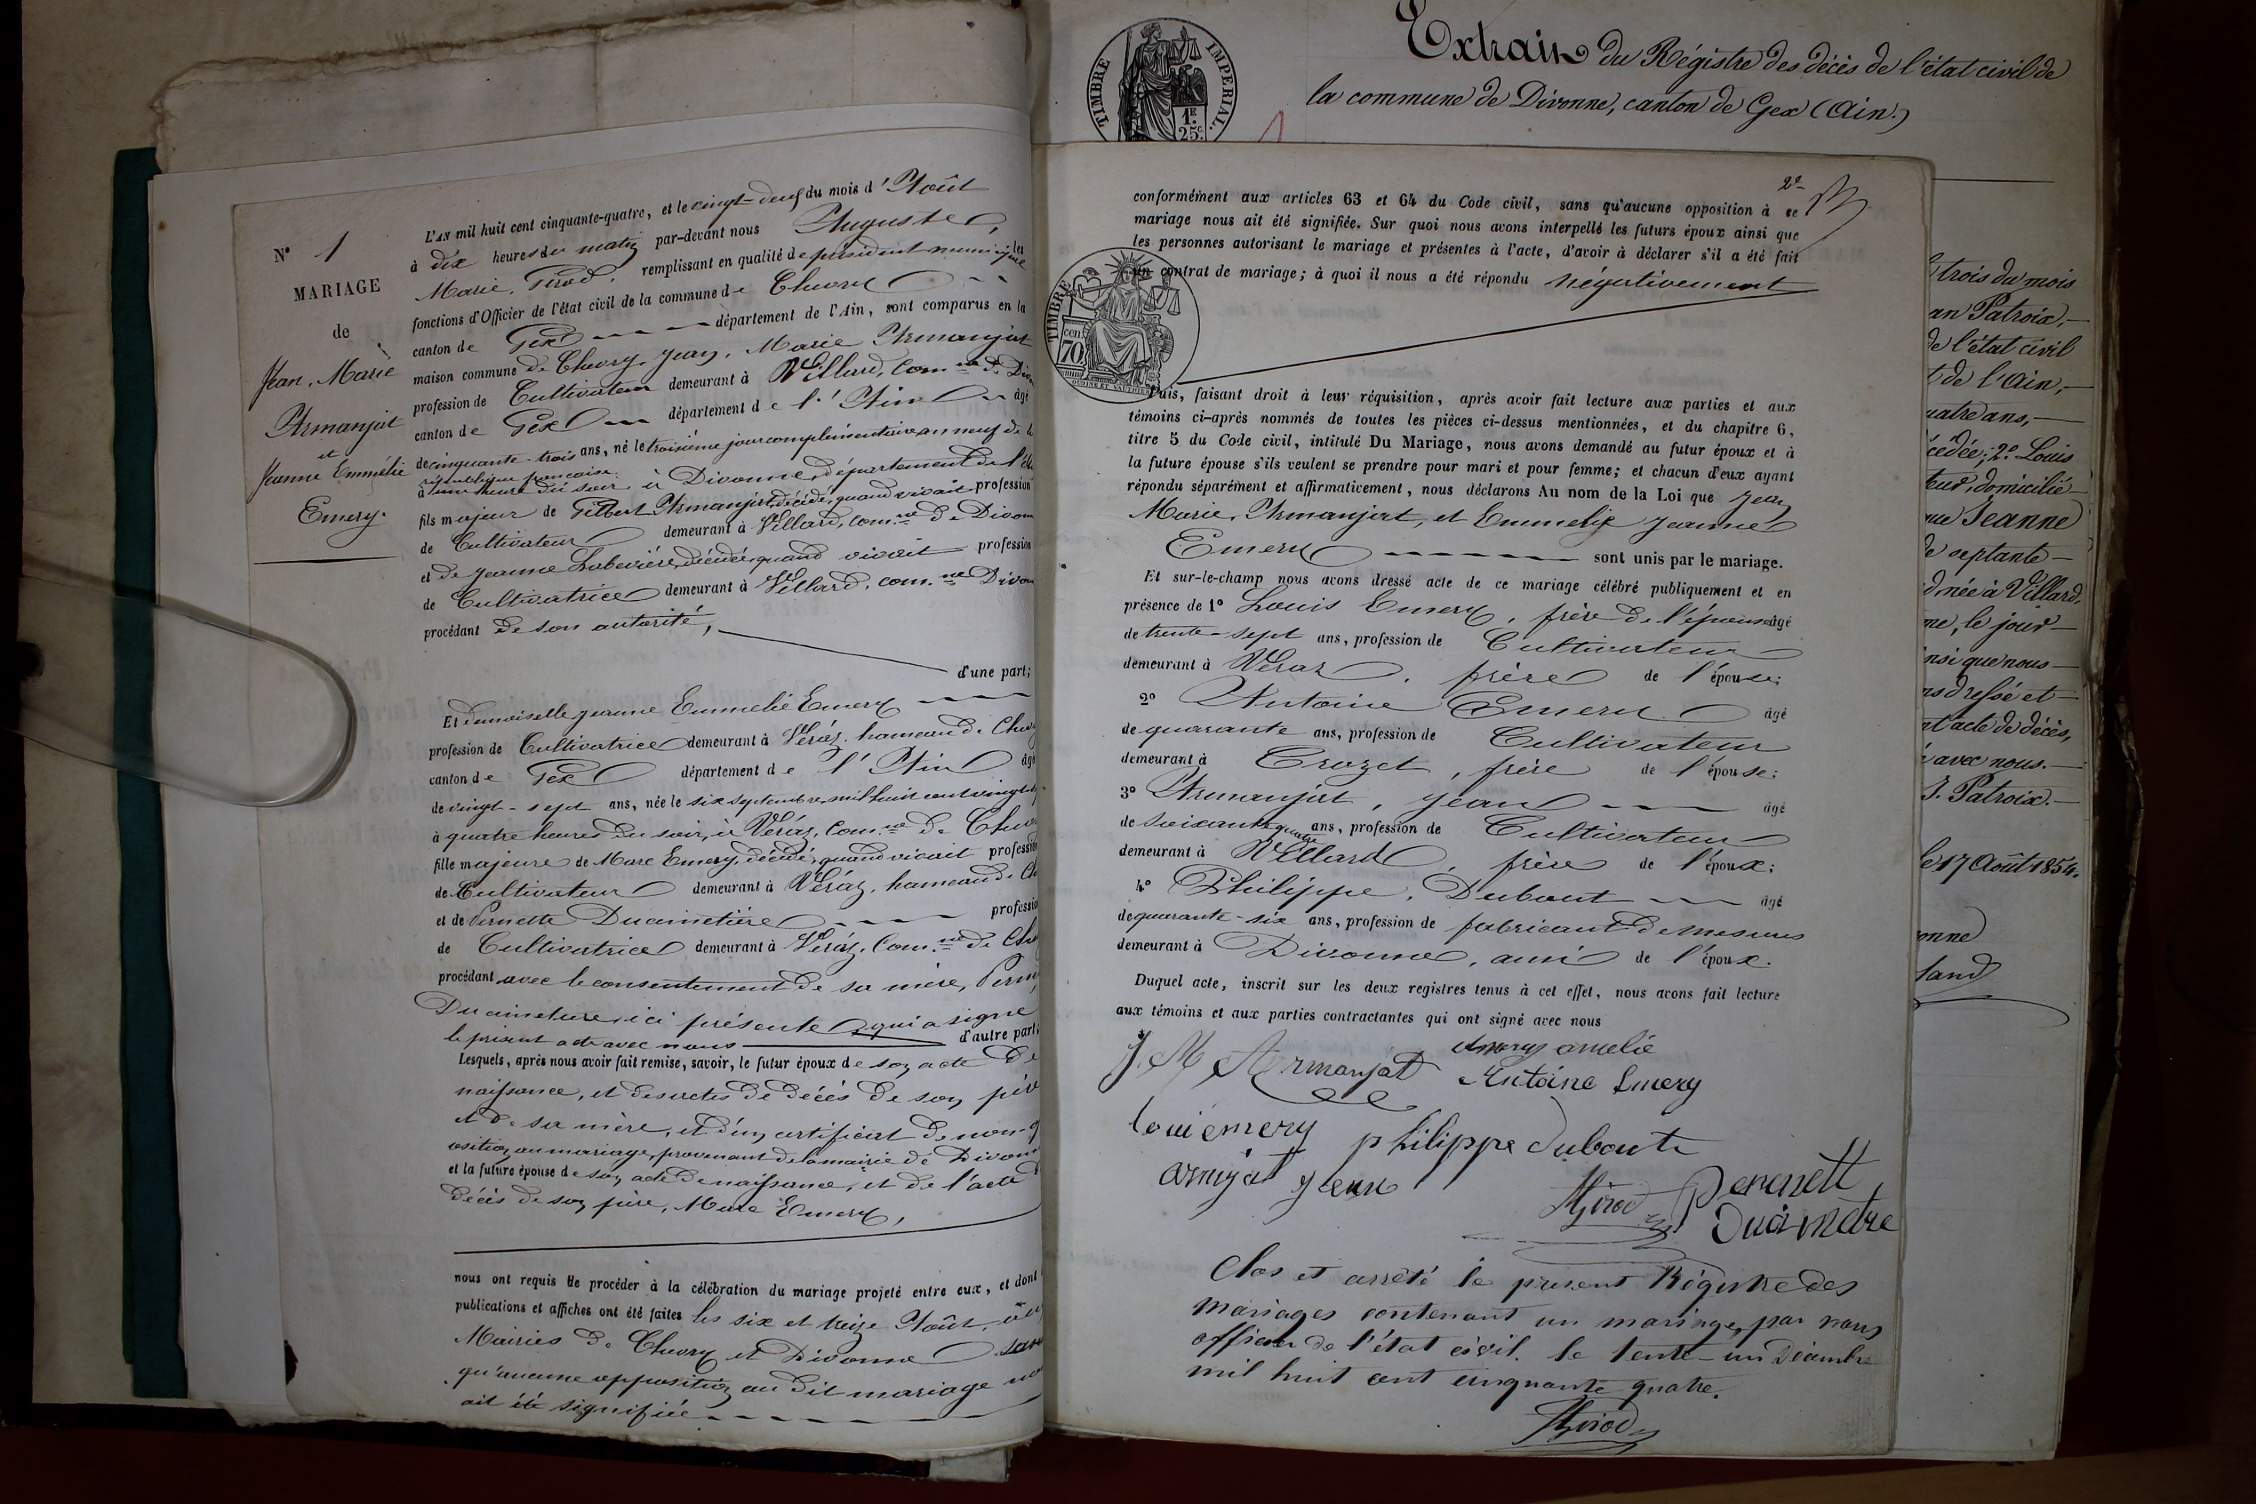 N° 1
MARIAGE
de
Jean, Marie
Armanjat
et
Jeanne Emmélie
Emery.
L'AN mil huit cent cinquante-quatre, et le vingt-deux du mois d'Août
à dix heures du matin par-devant nous Auguste
Marie, Girod, remplissant en qualité de président municipal les
fonctions d'Officier de l'état civil de la commune de Chevry
canton de Gex département de l'Ain, sont comparus en la
maison commune de Chevry, Jean, Marie Armanjat
profession de Cultivateur demeurant à Villard, com.ne de Divon
canton de Gex département de l'Ain âgé
de cinquante-trois ans, né le troisième jour complémentaire an neuf de la
république française
à une heure du soir à Divonne, département de l'Ain
fils majeur de Gilbert Armanjat, décédé, quand vivait profession
de Cultivateur demeurant à Villard, com.ne de Divon
et de Jeanne Labevière, décédée, quand vivait profession
de Cultivatrice demeurant à Villard, com.ne Divon
procédant de son autorité,
d'une part;
Et demoiselle Jeanne Emmelie Emery
profession de Cultivatrice demeurant à Véráz, hameau de Chev
canton de Gex département de l'Ain âgé
de vingt-sept ans, née le six septembre mil huit cent vingt-s
à quatre heures du soir, à Véráz, com.ne de Chev
fille majeure de Marc Emery, décédé, quand vivait profession
de Cultivateur demeurant à Véráz, hameau de Ch
et de Pernette Ducimetière profession
de Cultivatrice demeurant à Véráz, Com.ne de Che
procédant avec le consentement de sa mère, Pern
Ducimetière, ici présente qui a signé
le présent acte avec nous d'autre part;
Lesquels, après nous avoir fait remise, savoir, le futur époux de son acte de
naissance, et des actes de décès de son père
et de sa mère, et d'un certificat de non-o
osition au mariage, provenant de la mairie de Divonn
et la future épouse de son acte de naissance, et de l'acte d
décès de son père, Marc Emery,
nous ont requis de procéder à la célébration du mariage projeté entre eux, et dont
publications et affiches ont été faites les six et treize Août, au
Mairies de Chevry et Divonne sans
qu'aucune opposition au dit mariage no
ait été signifiée
2e
conformément aux articles 63 et 64 du Code civil, sans qu'aucune opposition à ce
mariage nous ait été signifiée. Sur quoi nous avons interpellé les futurs époux ainsi que
les personnes autorisant le mariage et présentes à l'acte, d'avoir à déclarer s'il a été fait
un contrat de mariage; à quoi il nous a été répondu négativement
TIMBRE
70
Puis, faisant droit à leur réquisition, après avoir fait lecture aux parties et aux
témoins ci-après nommés de toutes les pièces ci-dessus mentionnées, et du chapitre 6,
titre 5 du Code civil, intitulé Du Mariage, nous avons demandé au futur époux et à
la future épouse s'ils veulent se prendre pour mari et pour femme; et chacun d'eux ayant
répondu séparément et affirmativement, nous déclarons Au nom de la Loi que Jean
Marie, Armanjat, et Emmelie Jeanne
Emery sont unis par le mariage.
Et sur-le-champ nous avons dressé acte de ce mariage célébré publiquement et en
présence de 1° Louis Emery, frère de l'épouse âgé
de trente-sept ans, profession de Cultivateur
demeurant à Véraz, frère de l'épouse;
2° Antoine Emery âgé
de quarante ans, profession de Cultivateur
demeurant à Crozet, frère de l'épouse;
3° Armanjat, Jean âgé
de soixante quatre ans, profession de Cultivateur
demeurant à Villard, frère de l'époux;
4° Philippe, Dubout âgé
de quarante-six ans, profession de fabricant de mesures
demeurant à Divonne, ami de l'époux.
Duquel acte, inscrit sur les deux registres tenus à cet effet, nous avons fait lecture
aux témoins et aux parties contractantes qui ont signé avec nous
J. M Armanjat Emery amelie
Antoine Emery
Loui emery philippe Duboute
armjat Jean
Girod Perenett
Ducimetire
Clos et arrêté le présent Régistre des
mariages contenant un mariage, par nous
officier de l'état civil. le trente-un Décembre
mil huit cent cinquante quatre.
Girod
TIMBRE IMPERIAL.
1F
25c
Extrait du Régistre des décès de l'état civil de
la commune de Divonne, canton de Gex (Ain.)
trois du mois
an Patroix,
de l'état civil
t de l'Ain,
uatre ans,
écédée; 2° Louis
teur, domicilié
que Jeanne
de septante
d, née à Villard,
me, le jour
insi que nous
ns dressé et
nt acte de décès,
é avec nous.
J. Patroix.
le 17 Août 1854.
onne
land